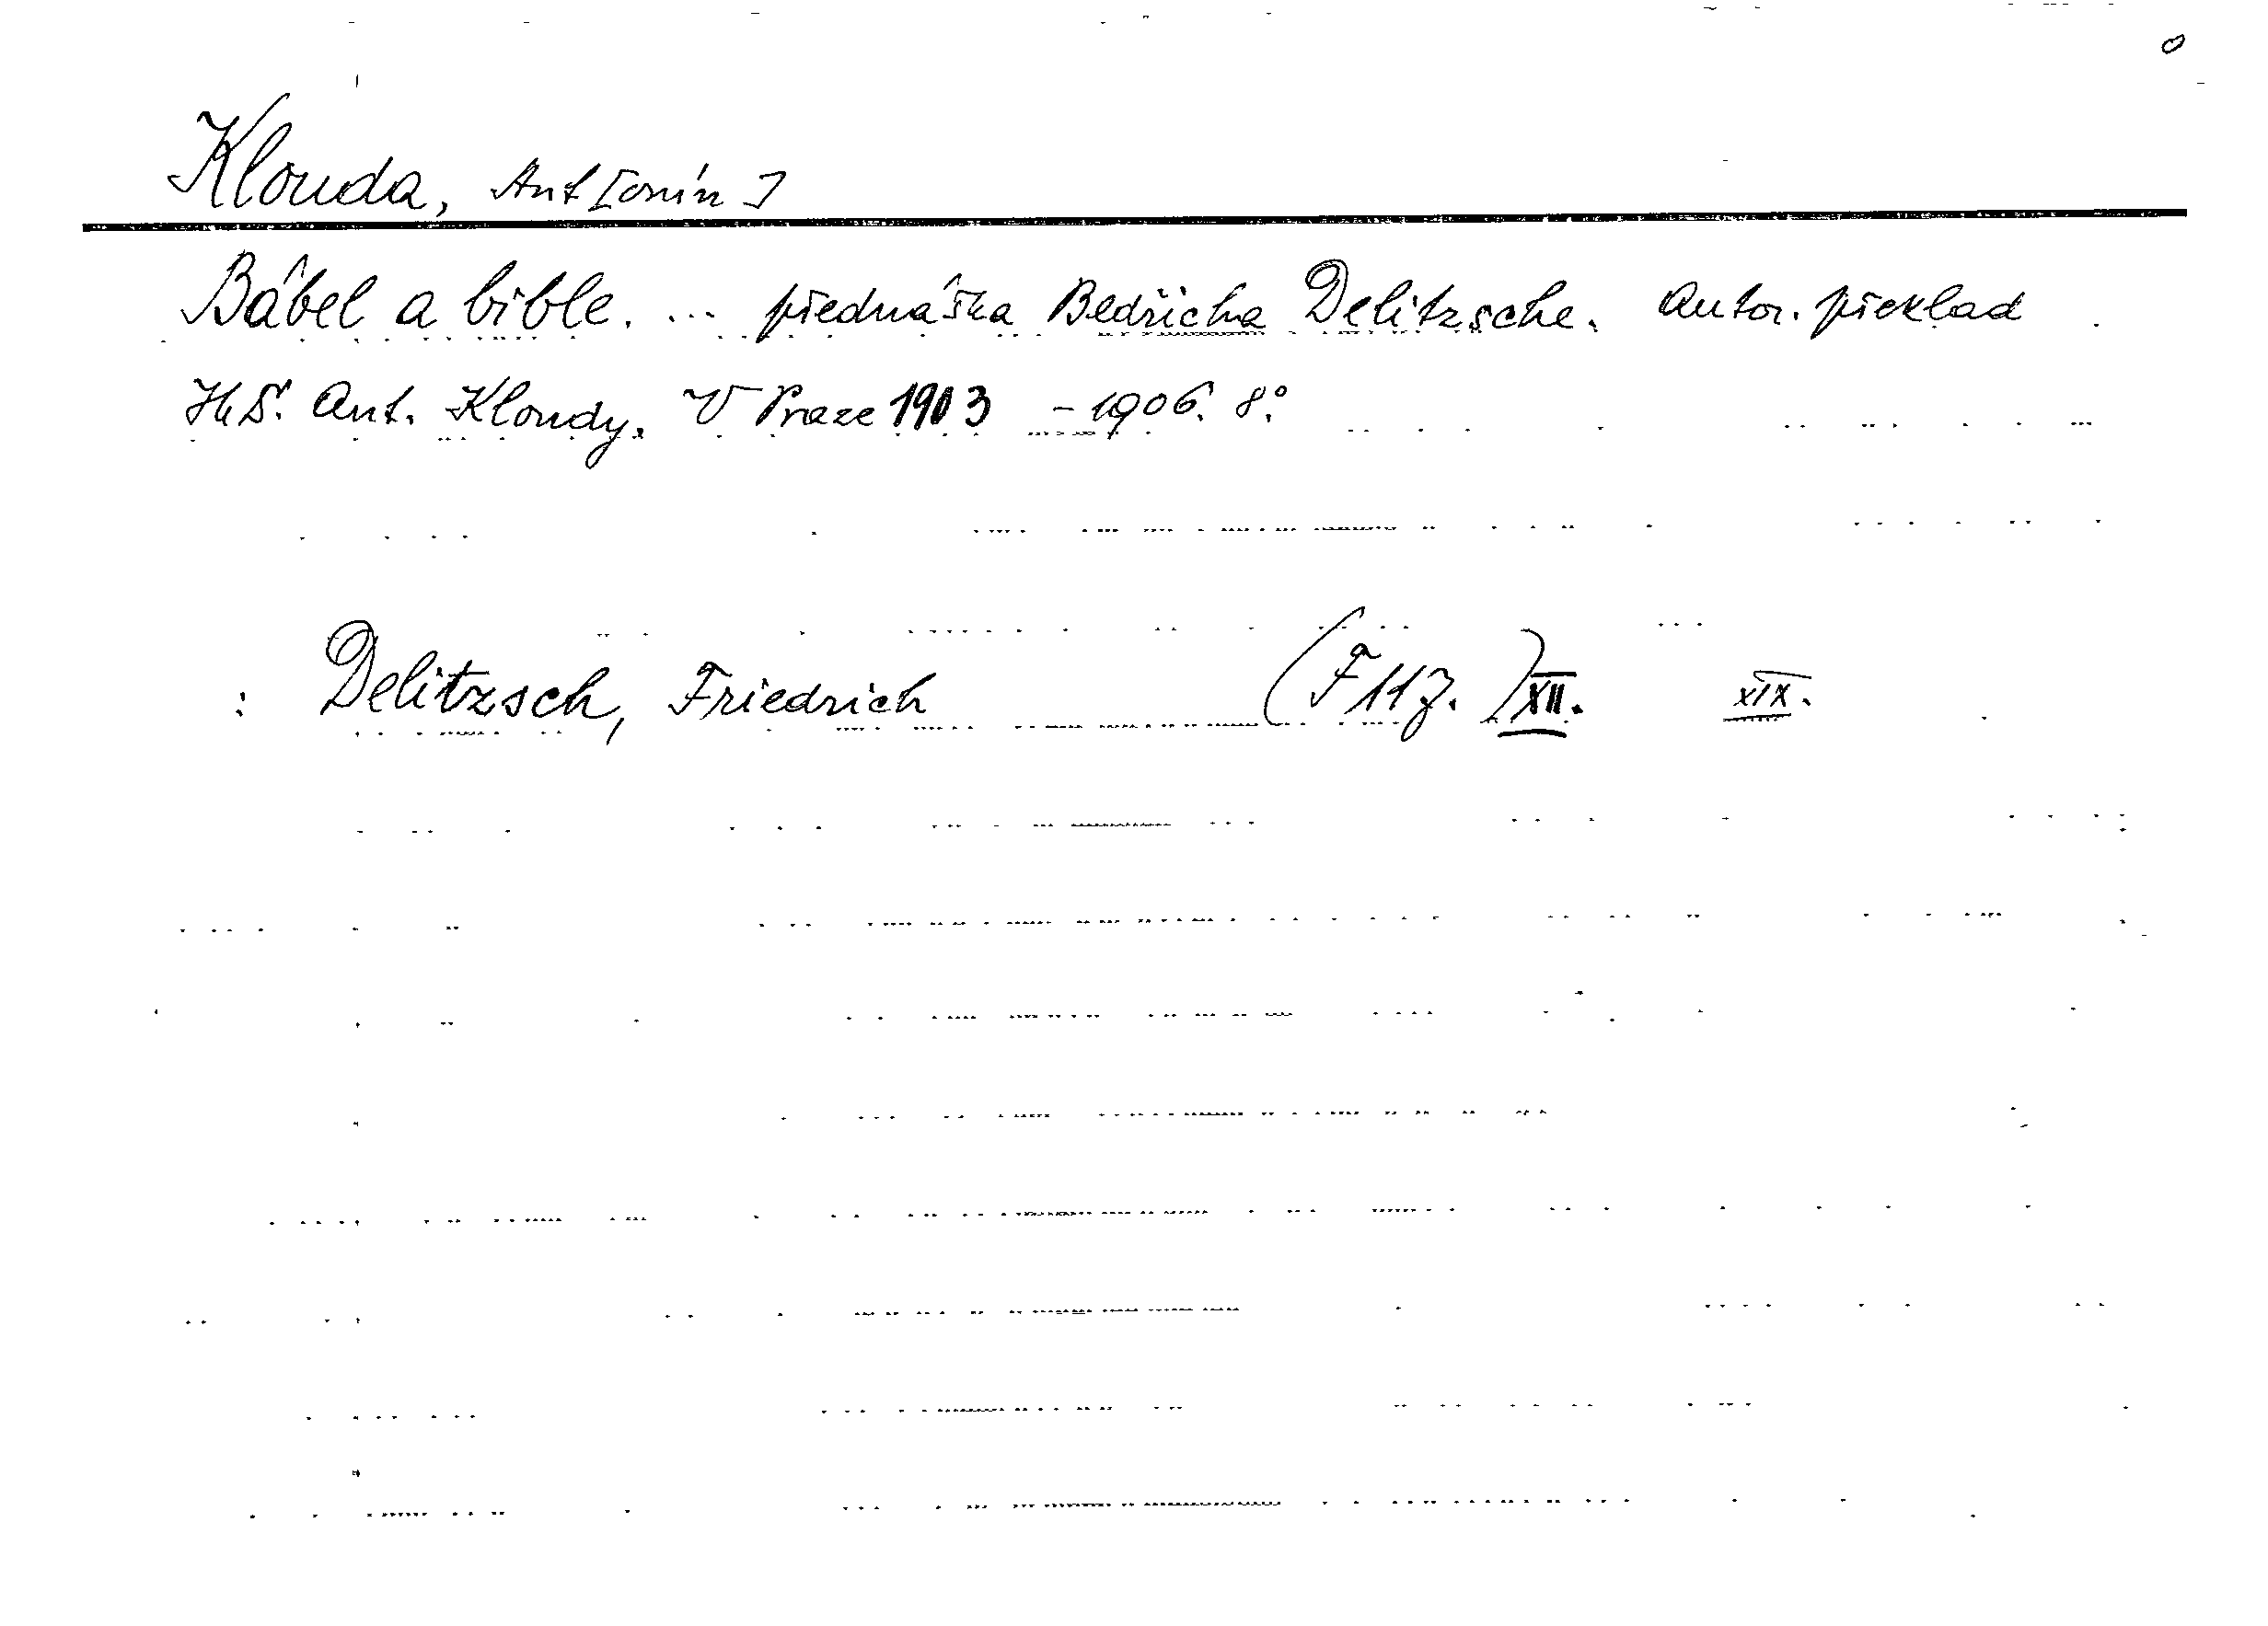 Klouda, Ant[onín]
Bábel a bible. ... přednáška Bedřicha Delitzsche. Autor. překlad
Ant. Kloudy. V Praze 1903 - 1906. 8°.
: Delitzsch, Friedrich (F 117.) XII. XIX.